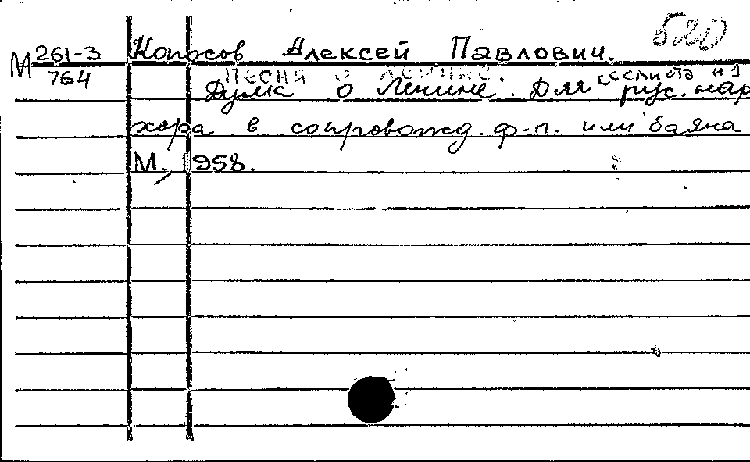 520
М 261-3
764
Копосов Алексей Павлович.
ПЕСНИ О ЛЕНИНЕ.
Дума о Ленине. Для солиста и рус. нар
хора в сопровожд. ф-п. или баяна
М., 1958.